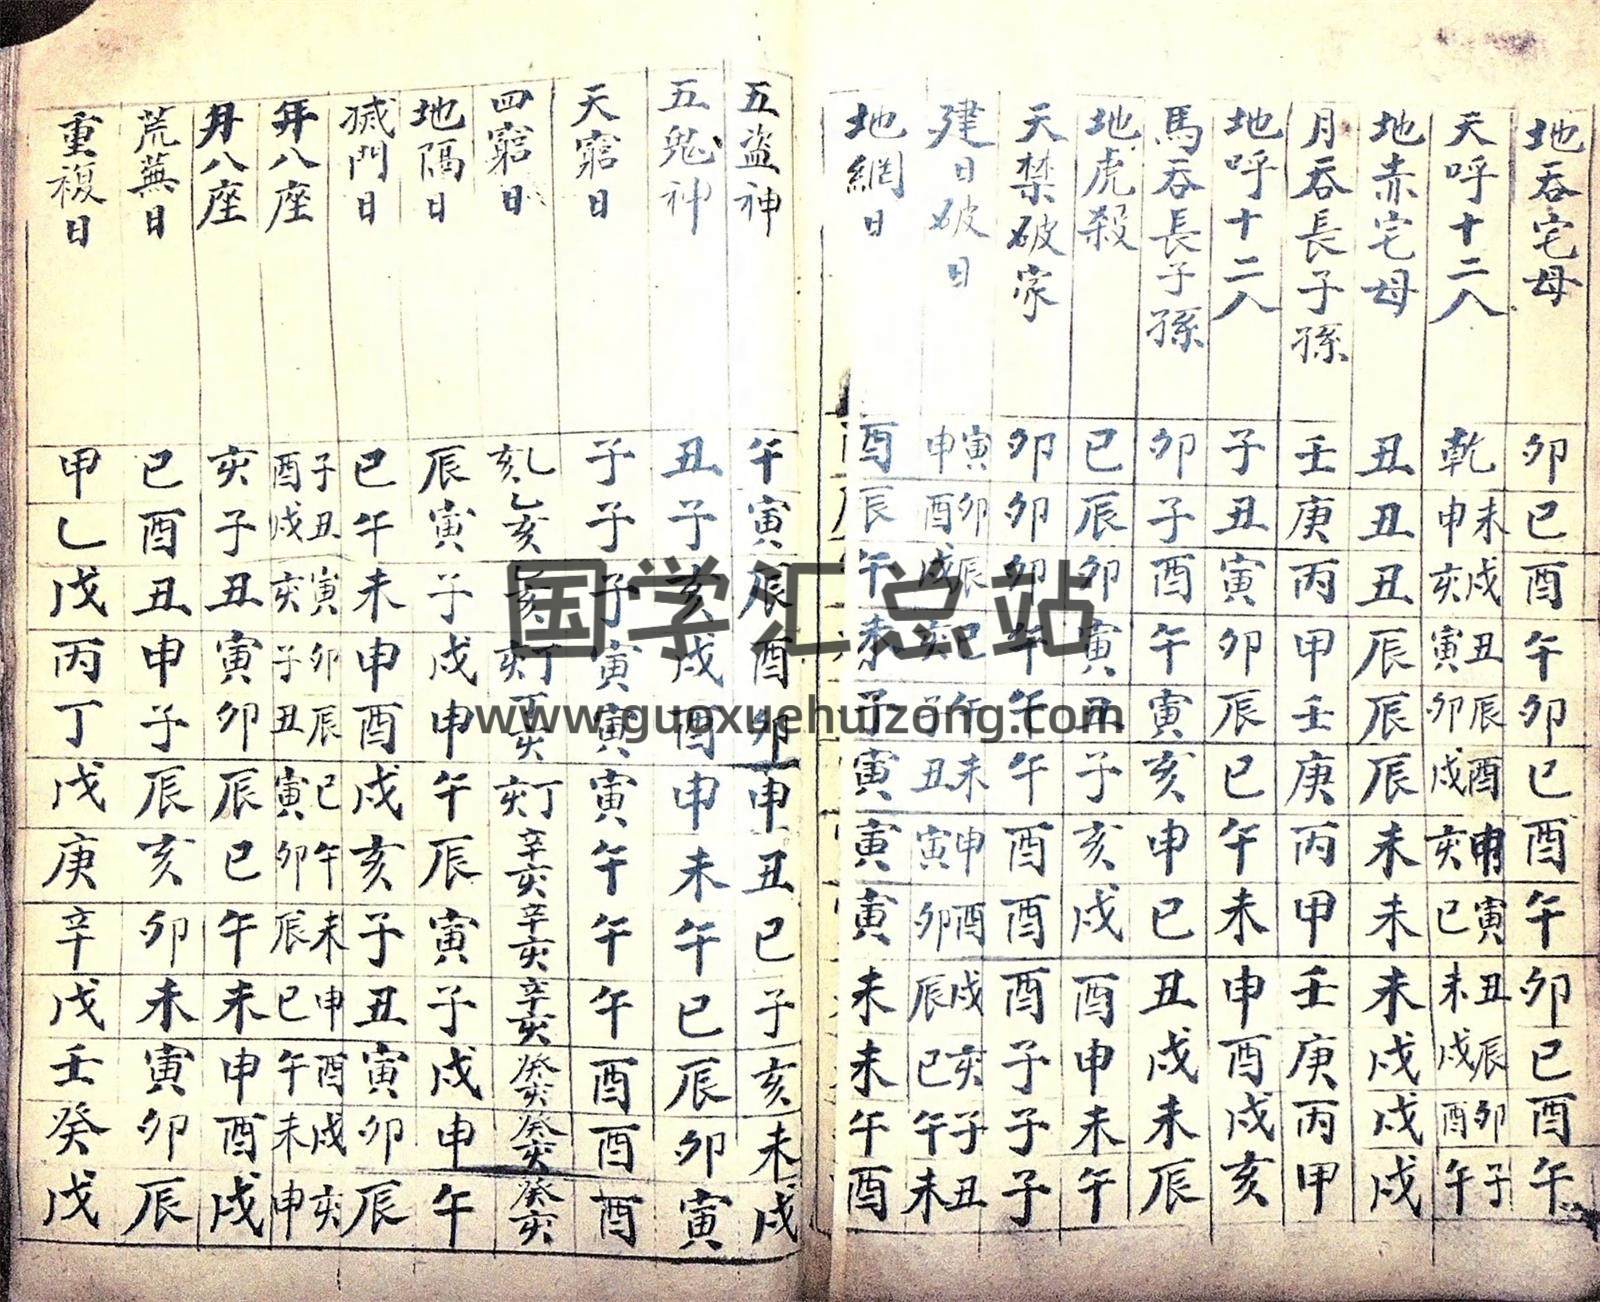 地吞宅母 卯巳酉午卯巳酉午卯巳酉午
天呼十二八 乾 未申 戌亥 丑寅 辰卯 酉戌 申亥 寅巳 丑未 辰戌 卯酉 子午
地赤宅母 丑丑丑辰辰辰未未未戌戌戌
月吞長子孫 壬庚丙甲壬庚丙甲壬庚丙甲
地呼十二八 子丑寅卯辰巳午未申酉戌亥
馬吞長子孫 卯子酉午寅亥申巳丑戌未辰
地虎殺 巳辰卯寅丑子亥戌酉申未午
天禁破家 卯卯卯午午午酉酉酉子子子
建日破日 寅申 卯酉 辰戌 巳亥 午子 未丑 申寅 酉卯 戌辰 亥巳 子午 丑未
地網日 酉辰午未子寅寅寅未未午酉
五盗神 午寅辰酉卯申丑巳子亥未戌
五鬼神 丑子亥戌酉申未午巳辰卯寅
天窮日 子子子寅寅寅午午午酉酉酉
四窮日 乙亥 乙亥 亥 丁亥 亥 丁亥 辛亥 辛亥 辛亥 癸亥 癸亥 癸亥
地隔日 辰寅子戌申午辰寅子戌申午
滅門日 巳午未申酉戌亥子丑寅卯辰
年八座 子酉 丑戌 寅亥 卯子 辰丑 巳寅 午卯 未辰 申巳 酉午 戌未 亥申
月八座 亥子丑寅卯辰巳午未申酉戌
荒蕪日 巳酉丑申子辰亥卯未寅卯辰
重複日 甲乙戊丙丁戊庚辛戊壬癸戊
国学汇总站
www.guoxuehuizong.com